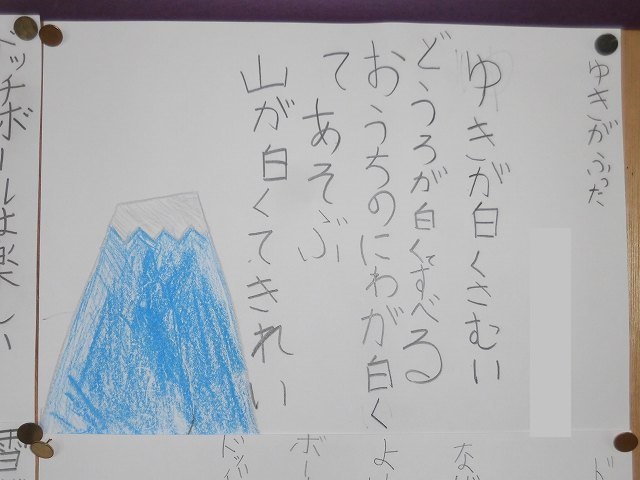 ゆきがふった
ゆきが白くさむい
どうろが白くてすべる
おうちのにわが白く
て あそぶ
山が白くてきれい
ドッチボールは楽しい